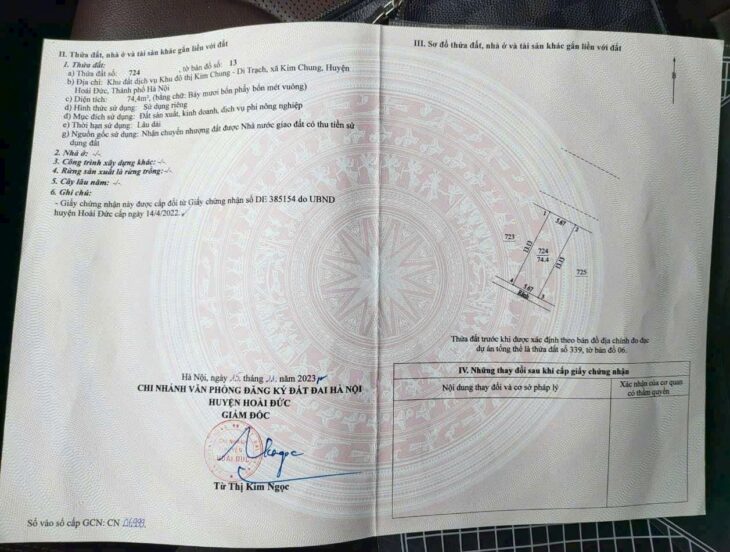 II. Thửa đất, nhà ở và tài sản khác gắn liền với đất
1. Thửa đất:
a) Thửa đất số: 724 , tờ bản đồ số: 13
b) Địa chỉ: Khu đất dịch vụ Khu đô thị Kim Chung - Di Trạch, xã Kim Chung, Huyện
Hoài Đức, Thành phố Hà Nội
c) Diện tích: 74,4m², (bằng chữ: Bảy mươi bốn phẩy bốn mét vuông)
d) Hình thức sử dụng: Sử dụng riêng
đ) Mục đích sử dụng: Đất sản xuất, kinh doanh, dịch vụ phi nông nghiệp
e) Thời hạn sử dụng: Lâu dài
g) Nguồn gốc sử dụng: Nhận chuyển nhượng đất được Nhà nước giao đất có thu tiền sử
dụng đất
2. Nhà ở: -/-
3. Công trình xây dựng khác: -/-
4. Rừng sản xuất là rừng trồng: -/-
5. Cây lâu năm: -/-
6. Ghi chú:
- Giấy chứng nhận này được cấp đổi từ Giấy chứng nhận số DE 385154 do UBND
huyện Hoài Đức cấp ngày 14/4/2022.
Hà Nội, ngày tháng năm 2023
CHI NHÁNH VĂN PHÒNG ĐĂNG KÝ ĐẤT ĐAI HÀ NỘI
HUYỆN HOÀI ĐỨC
GIÁM ĐỐC
Từ Thị Kim Ngọc
Số vào sổ cấp GCN: CN
III. Sơ đồ thửa đất, nhà ở và tài sản khác gắn liền với đất
B
1
5.67
2
723
13.13
724
74.4
13.13
725
4
5.67
3
Thửa đất trước khi được xác định theo bản đồ địa chính đo đạc
dự án tổng thể là thửa đất số 339, tờ bản đồ 06.
IV. Những thay đổi sau khi cấp giấy chứng nhận
Nội dung thay đổi và cơ sở pháp lý
Xác nhận của cơ quan
có thẩm quyền